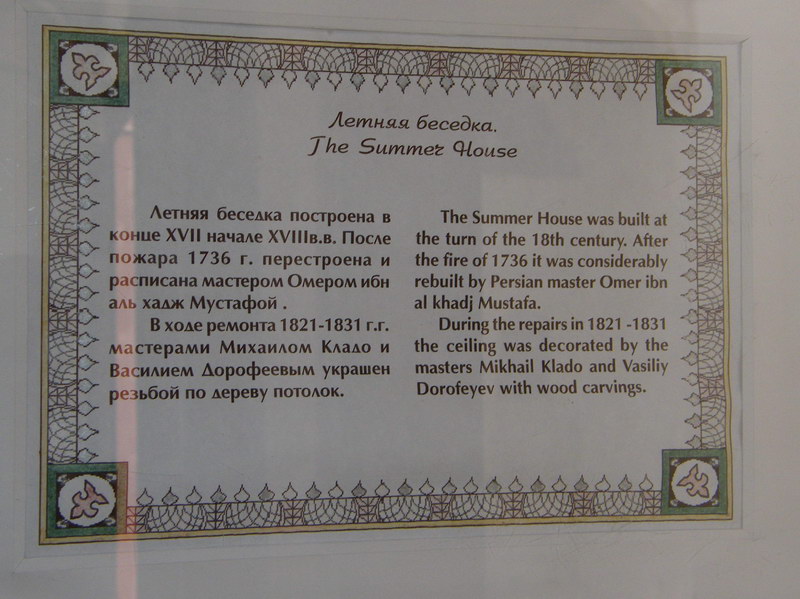 Летняя беседка.
The Summer House
Летняя беседка построена в
конце XVII начале XVIIIв.в. После
пожара 1736 г. перестроена и
расписана мастером Омером ибн
аль хадж Мустафой .
В ходе ремонта 1821-1831 г.г.
мастерами Михаилом Кладо и
Василием Дорофеевым украшен
резьбой по дереву потолок.
The Summer House was built at
the turn of the 18th century. After
the fire of 1736 it was considerably
rebuilt by Persian master Omer ibn
al khadj Mustafa.
During the repairs in 1821 -1831
the ceiling was decorated by the
masters Mikhail Klado and Vasiliy
Dorofeyev with wood carvings.